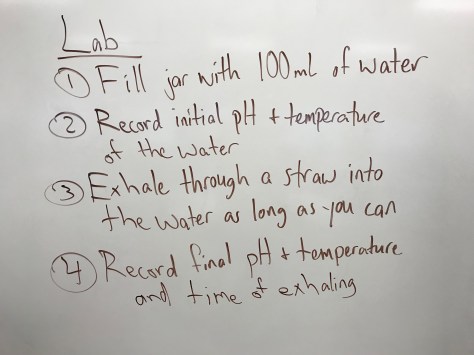 Lab
① Fill jar with 100 mL of water
② Record initial pH + temperature
of the water
③ Exhale through a straw into
the water as long as you can
④ Record final pH + temperature
and time of exhaling